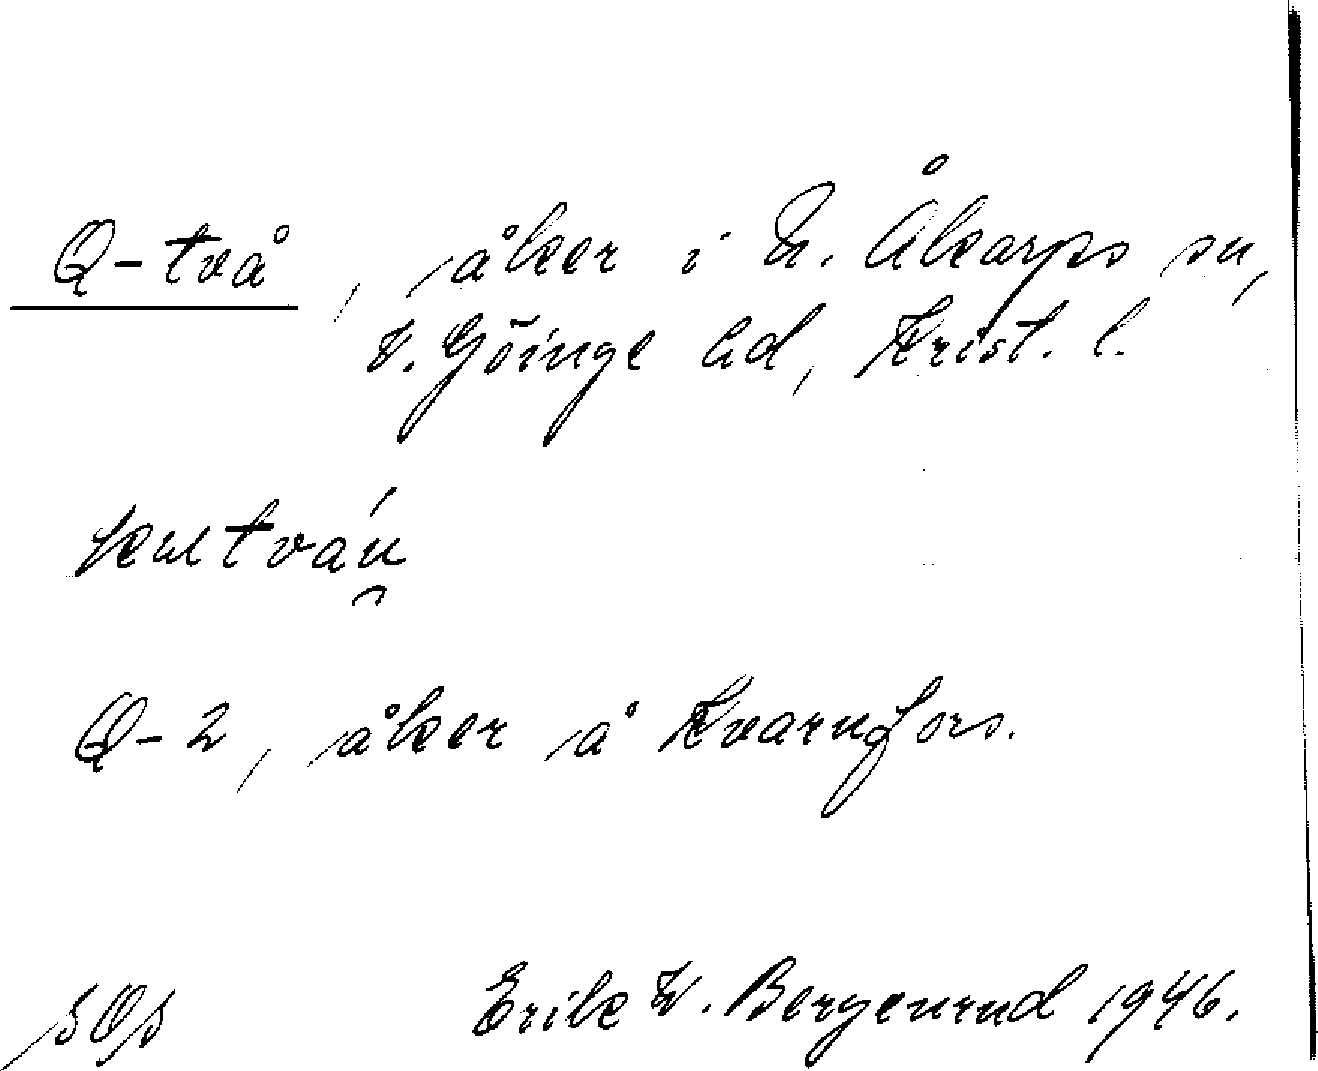 Q-två, åker i N. Åkarps sn,
V. Göinge hd, Krist. l.
Q-2, åker å Kvarnfors.
Erik W. Bergenrud 1946.